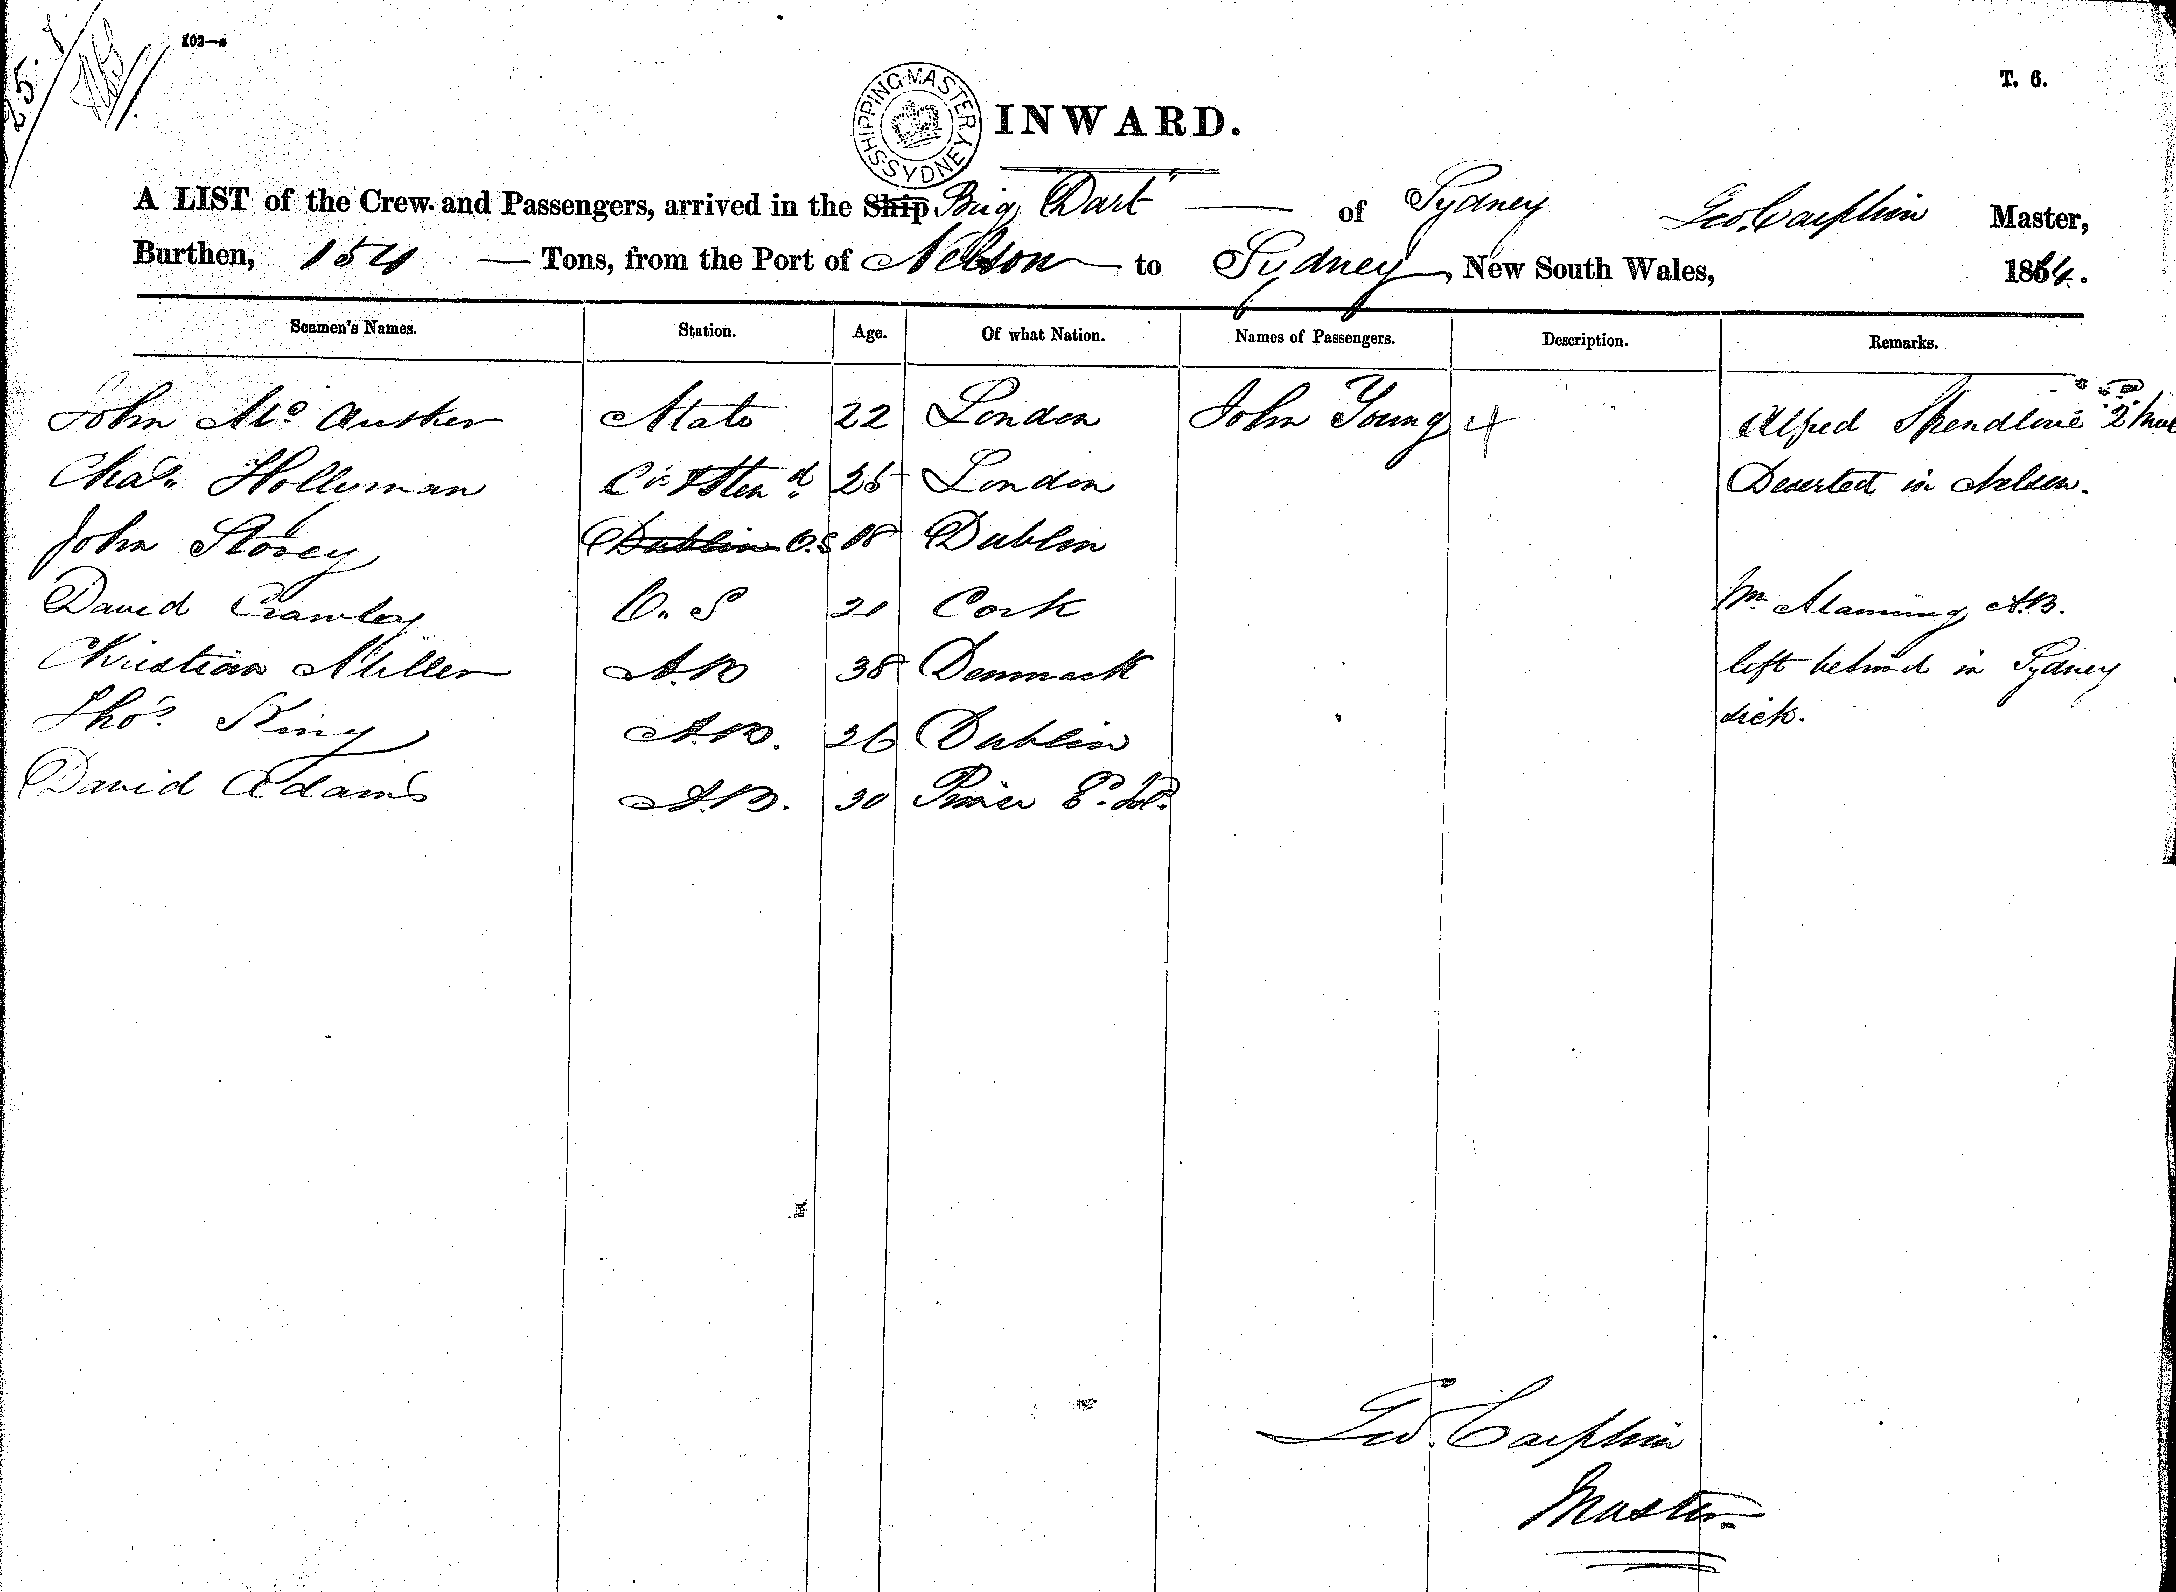 102—a
T. 6.
SHIPPING MASTER SYDNEY
INWARD.
A LIST of the Crew and Passengers, arrived in the Ship Brig "Dart" — of Sydney Geo. Master,
Burthen, 154 — Tons, from the Port of Nelson to Sydney, New South Wales, 1864.
Seamen's Names. Station. Age. Of what Nation. Names of Passengers. Description. Remarks.
John Mc Mate 22 London John Young 4 Alfred 2 Mate
Chas. Hollyman Ck & Stewd. 25 London Deserted in Nelson.
John Storey Dublin O.S 18 Dublin
David Crawley O. S 20 Cork Wm Manning A.B.
Christian Miller A.B 38 Denmark left behind in Sydney
Thos. King A.B. 26 Dublin sick.
David Adams A.B. 30 Prince Ed. Isld.
Geo.
Master